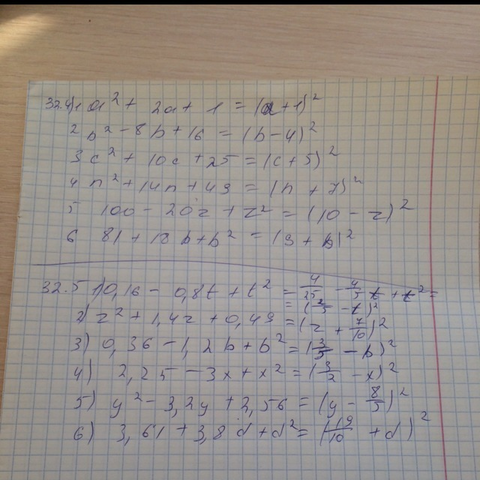 324) 1 a² + 2a + 1 = (a+1)²
2 b² - 8b + 16 = (b-4)²
3 c² + 10c + 25 = (c+5)²
4 n² + 14n + 49 = (n + 7)²
5 100 - 20z + z² = (10 - z)²
6 81 + 18b + b² = (9 + b)²
32.5 1) 0,16 - 0,8t + t² = 4/25 - 4/5 t + t² =
= (2/5 - t)²
2) z² + 1,4z + 0,49 = (z + 7/10)²
3) 0,36 - 1,2b + b² = (3/5 - b)²
4) 2,25 - 3x + x² = (3/2 - x)²
5) y² - 3,2y + 2,56 = (y - 8/5)²
6) 3,61 + 3,8d + d² = (19/10 + d)²